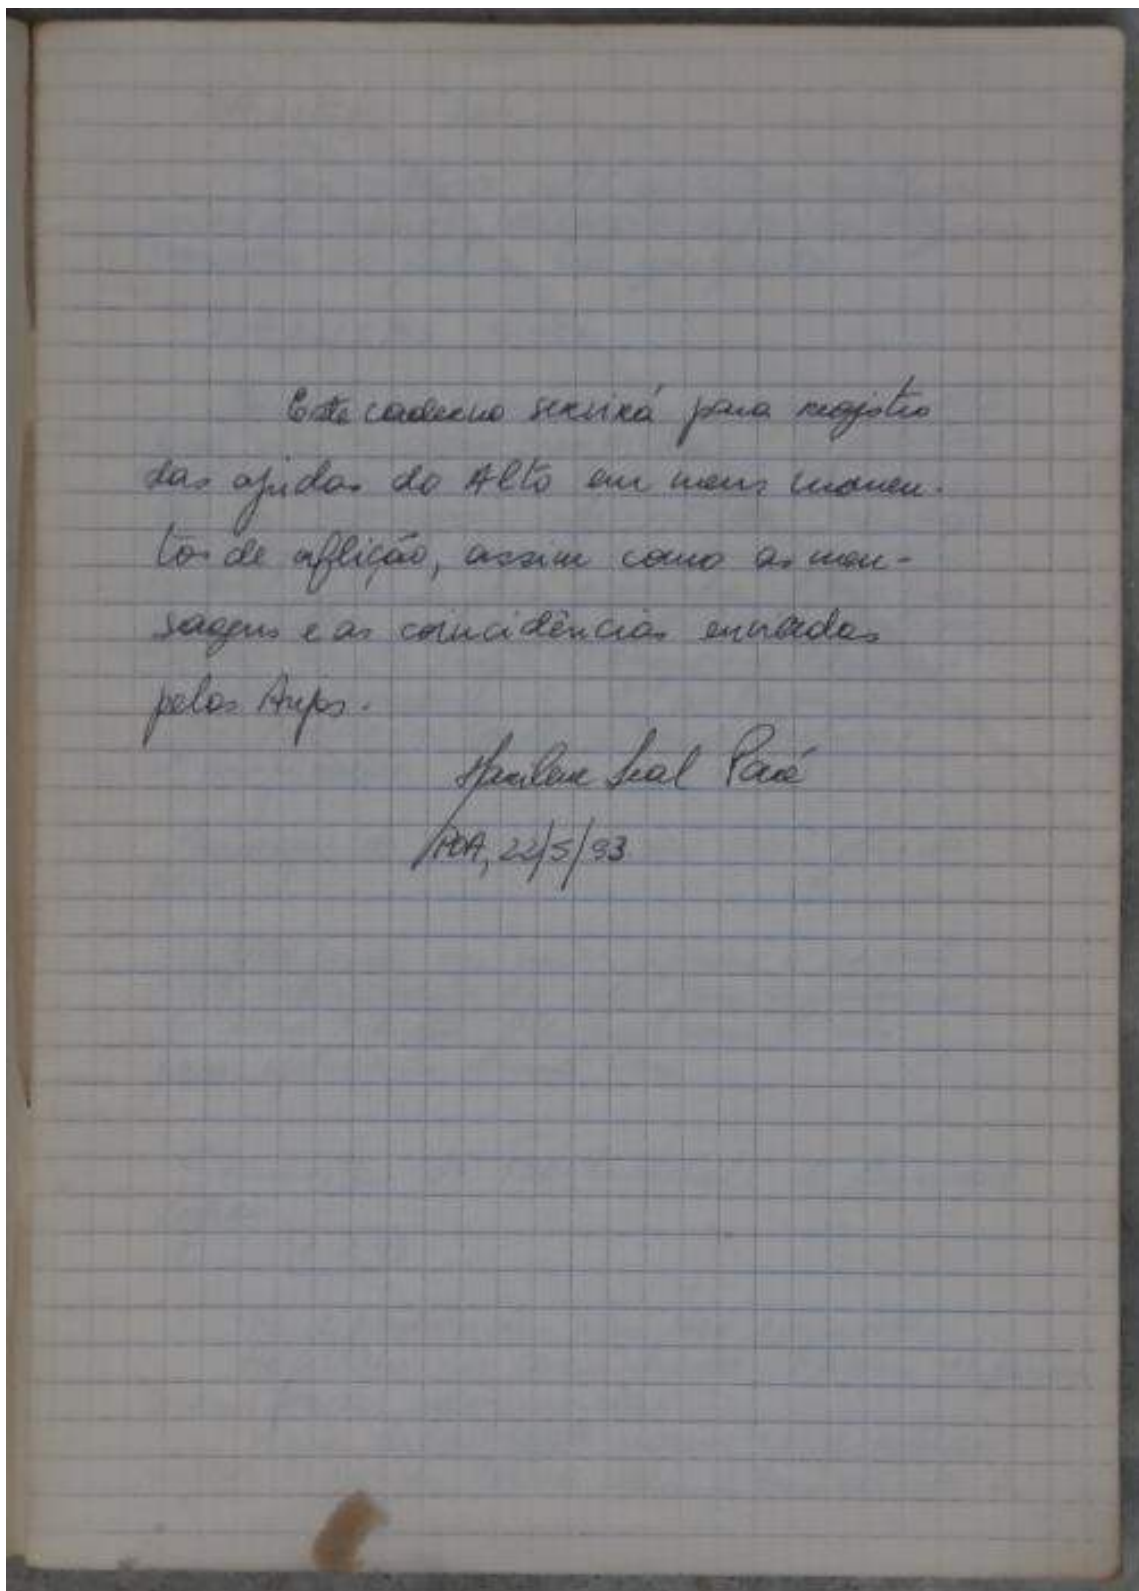 Este caderno servirá para registro
das ajudas do Alto em meus momen-
tos de aflição, assim como as men-
sagens e as coincidências enviadas
pelos Anjos.
Marilene Leal Paré
POA, 22/5/93